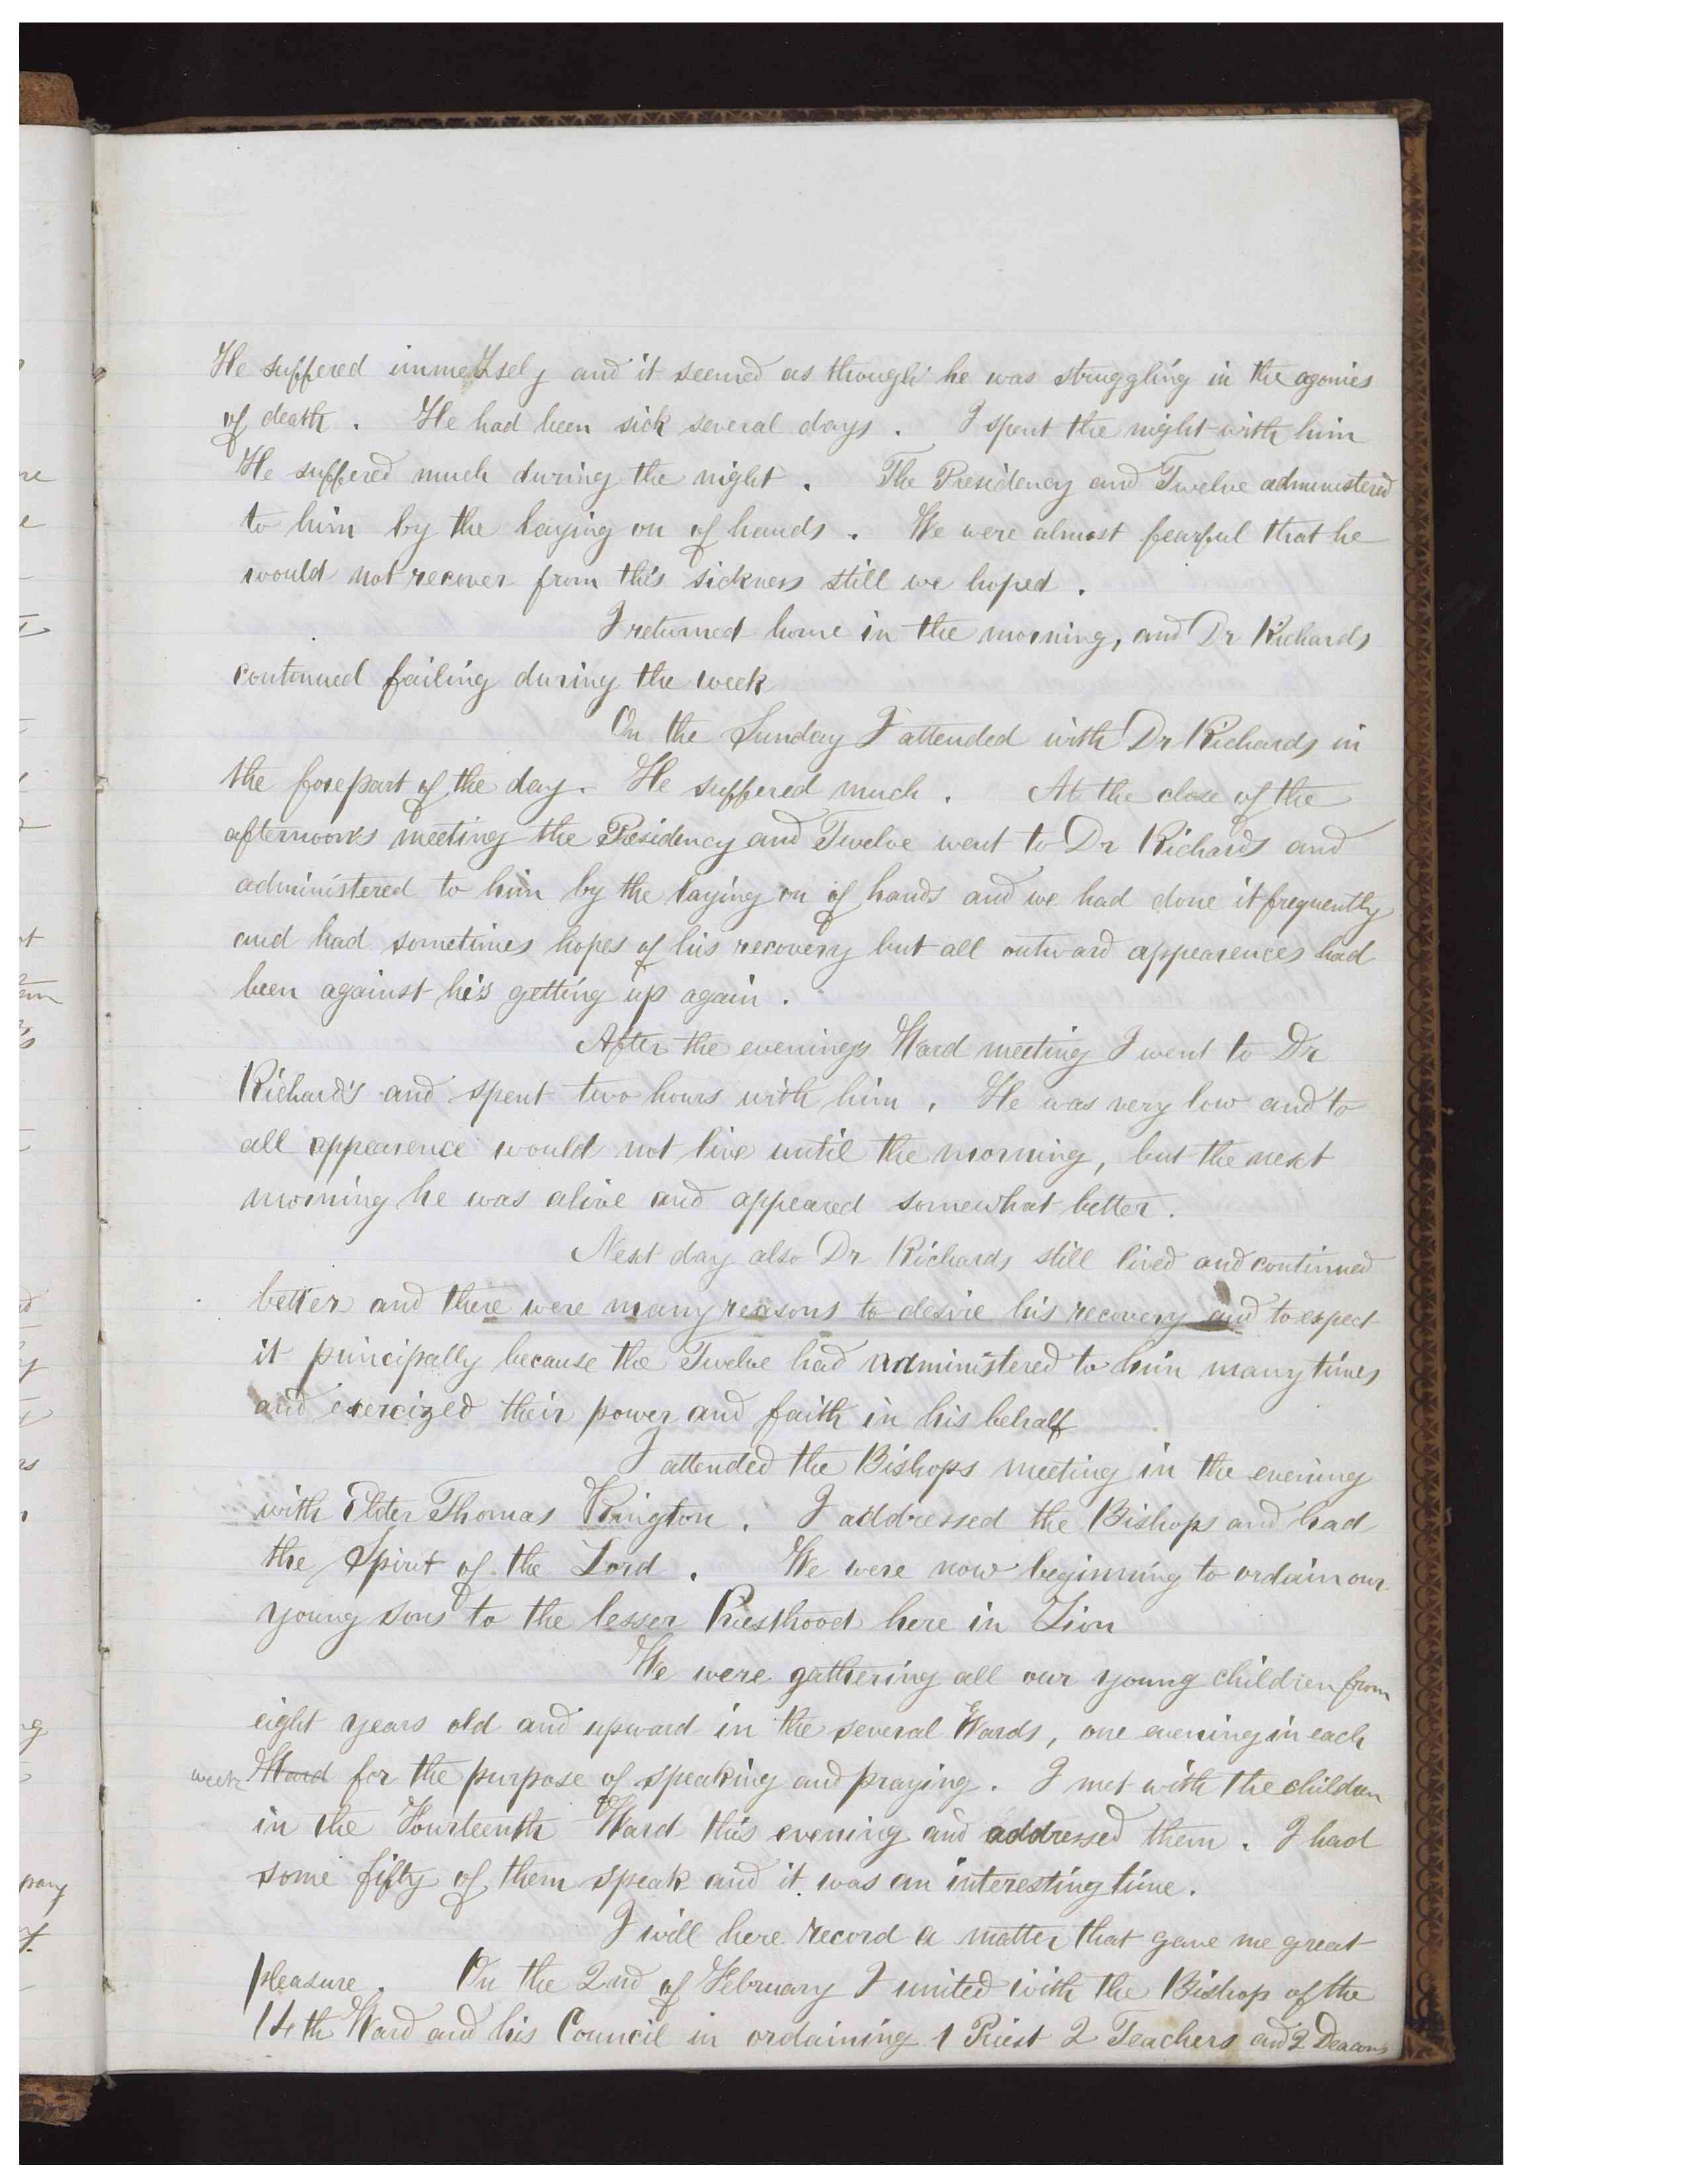 He suffered immensely and it seemed as though he was struggling in the agonies
of death. He had been sick several days. I spent the night with him
He suffered much during the night. The Presidency and Twelve administered
to him by the laying on of hands. We were almost fearful that he
would not recover from this sickness still we hoped.
I returned home in the morning, and Dr Richards
continued failing during the week
On the Sunday I attended with Dr Richards in
the forepart of the day. He suffered much. At the close of the
afternoon's meeting the Presidency and Twelve went to Dr Richards and
administered to him by the laying on of hands and we had done it frequently
and had sometimes hopes of his recovery but all outward appearences had
been against his getting up again.
After the evenings Ward meeting I went to Dr
Richard's and spent two hours with him. He was very low and to
all appearence would not live until the morning, but the next
morning he was alive and appeared somewhat better.
Next day also Dr Richards still lived and continued
better and there were many reasons to desire his recovery and to expect
it principally because the Twelve had administered to him many times
and exercized their power and faith in his behalf
I attended the Bishops meeting in the evening
with Elder Thomas. I addressed the Bishops and had
the Spirit of the Lord. We were now beginning to ordain our
young sons to the lesser Priesthood here in Zion
We were gathering all our young children from
eight years old and upward in the several Wards, one evening in each
week Ward for the purpose of speaking and praying. I met with the children
in the Fourteenth Ward this evening and addressed them. I had
some fifty of them speak and it was an interesting time.
I will here record a matter that gave me great
pleasure. On the 2nd of February I united with the Bishop of the
14th Ward and his Council in ordaining 1 Priest 2 Teachers and 2 Deacons